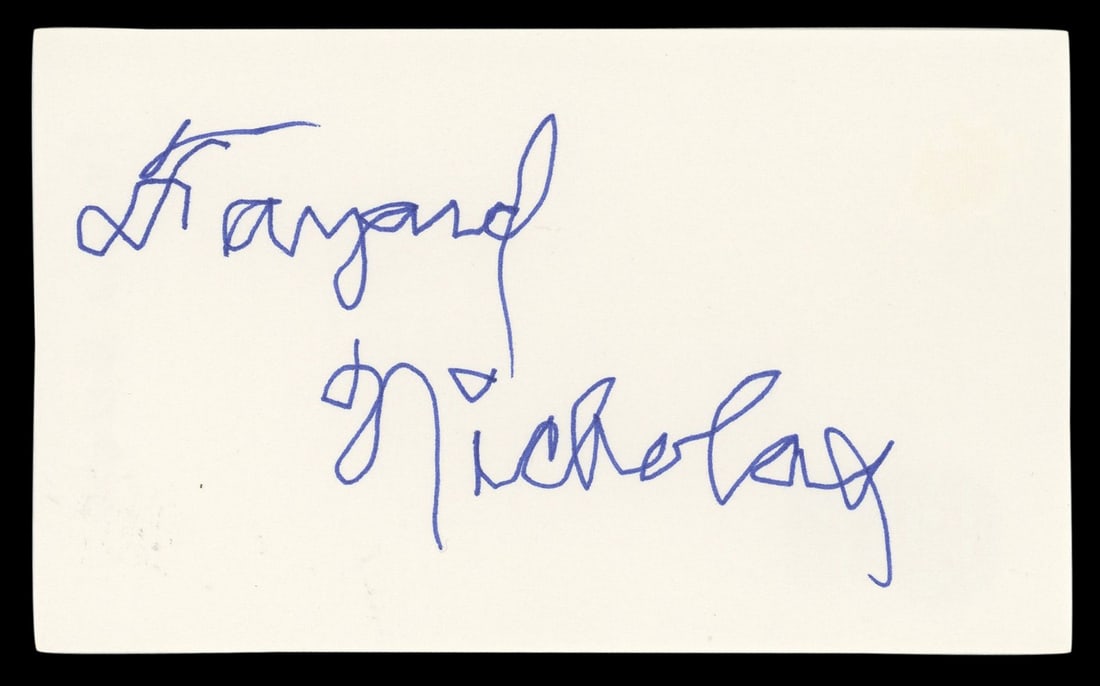 Fayard
Nicholas